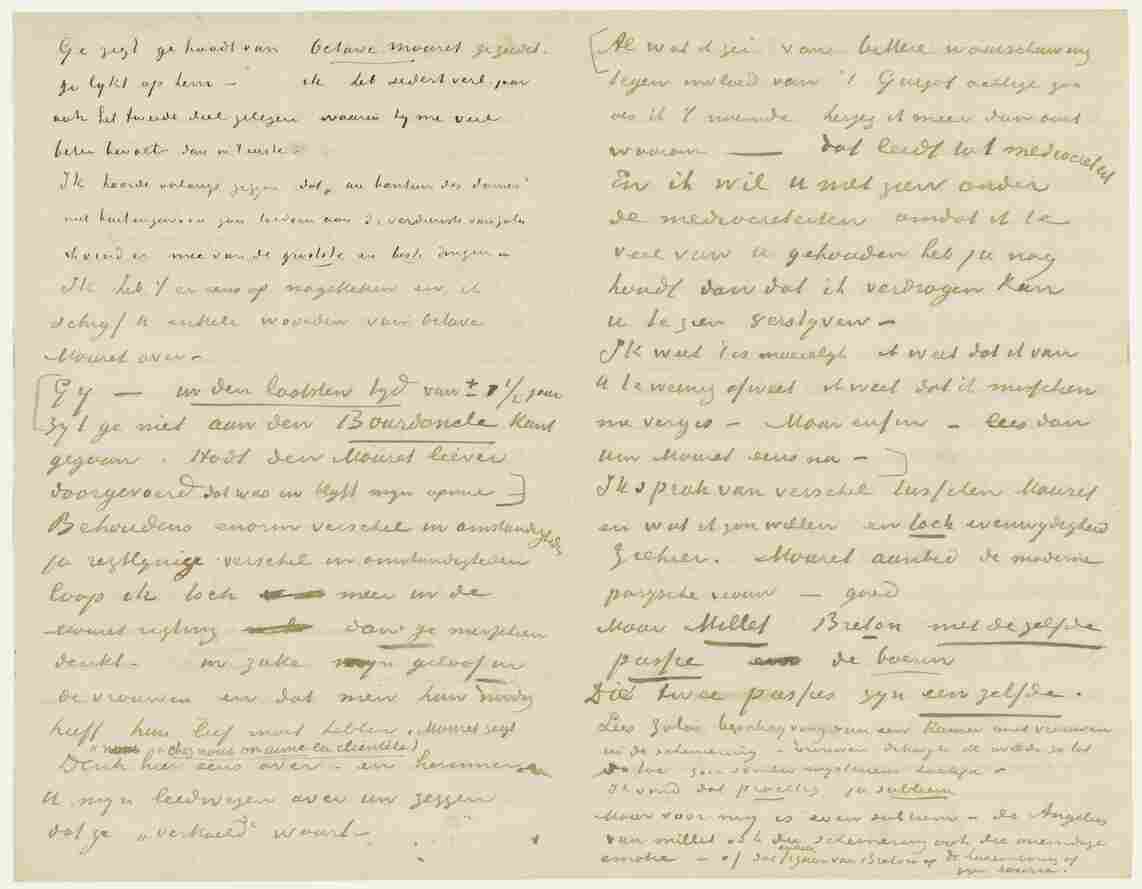 Ge zegt ge hoodt van octave mouret gezegd.
ge lykt op hem – ik heb sedert verl. jaar
ook het tweede deel gelezen waarin hy me veel
beter bevalt dan in 't eerste
Ik hoorde onlangs zeggen dat „au bonheur des dames"
niet buitengewoon zou toedoen aan de verdienste van zola
ik vind er mee van de grootste en beste dingen in
Ik heb 't er eens op nagekeken en ik
schryf U enkele woorden van octave
Mouret over –
Gy — in den laatsten tyd van ± 1 1/2 jaar
zyt ge niet aan den Bourdoncle kant
gegaan. Hadt den Mouret liever
doorgevoerd dat was en blyft myn opinie –
Behoudens enorm verschil in omstandigheden
ja regtlynige verschil in omstandigheden
loop ik toch meer in de
mouret rigting dan ge misschien
denkt – in zake myn geloof in
de vrouwen en dat men hun noodig
heeft hun lief moet hebben. Mouret zegt
„chez nous on aime la clientèle)
Denk hier eens over – en herinner
U myn leedwezen over uw zeggen
dat ge „verkoeld" waart –
Al wat ik zei van bittere waarschuwing
tegen invloed van 't Guizot achtige zoo
als ik 't noemde herzeg ik meer dan ooit
waarom — dat leidt tot mediocriteit
En ik wil U niet zien onder
de mediocriteiten omdat ik te
veel van U gehouden heb ja nog
houdt dan dat ik verdragen kan
U te zien verstyven –
Ik weet 't is moeielyk ik weet dat ik van
U te weinig afweet ik weet dat ik misschien
me vergis – Maar enfin – lees dan
uw Mouret eens na –
Ik sprak van verschil tusschen Mouret
en wat ik zou willen en toch evenwydigheid
Ziehier. Mouret aanbid de moderne
parysche vrouw – goed
Maar Millet Breton met dezelfde
passie de boerin
Die twee passies zyn een zelfde.
Lees Zola's beschryving van een Kamer met vrouwen
in de schemering – vrouwen dikwyls
Ik vind dat prachtig ja subliem
Maar voor my is even subliem – de Angelus
van millet ook die schemering ook die oneindige
emotie – of dat figuur van Breton op de